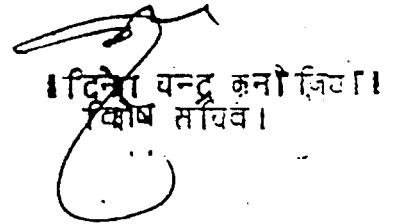 । दिनेश चन्द्र कनौजिया ।
विशेष सचिव ।